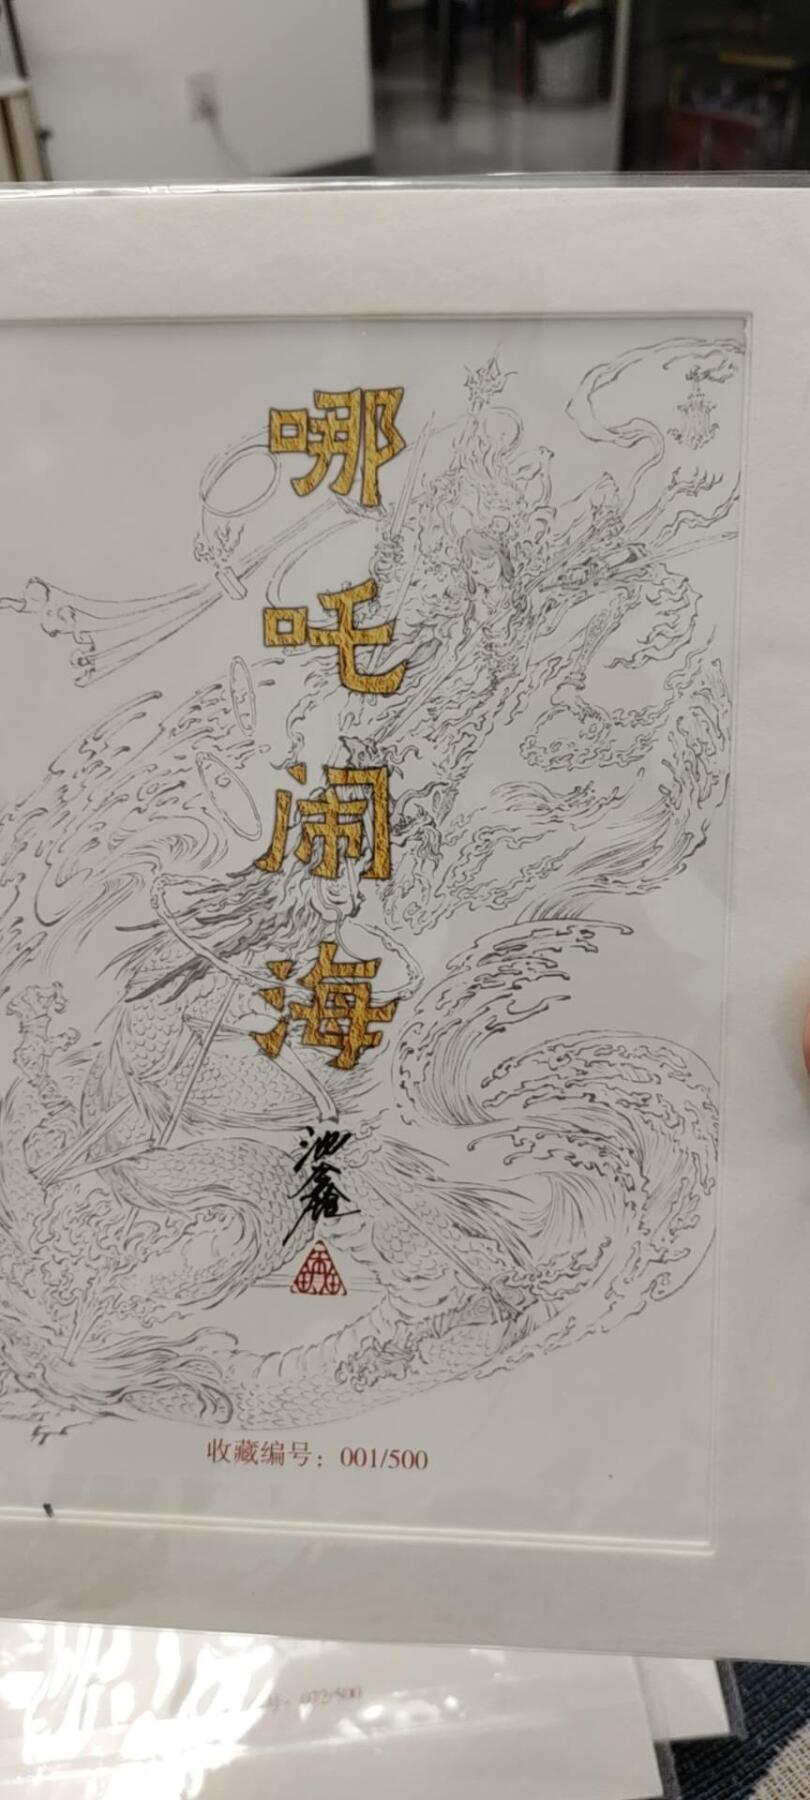 哪吒闹海
池鑫
收藏编号：001/500
072/500